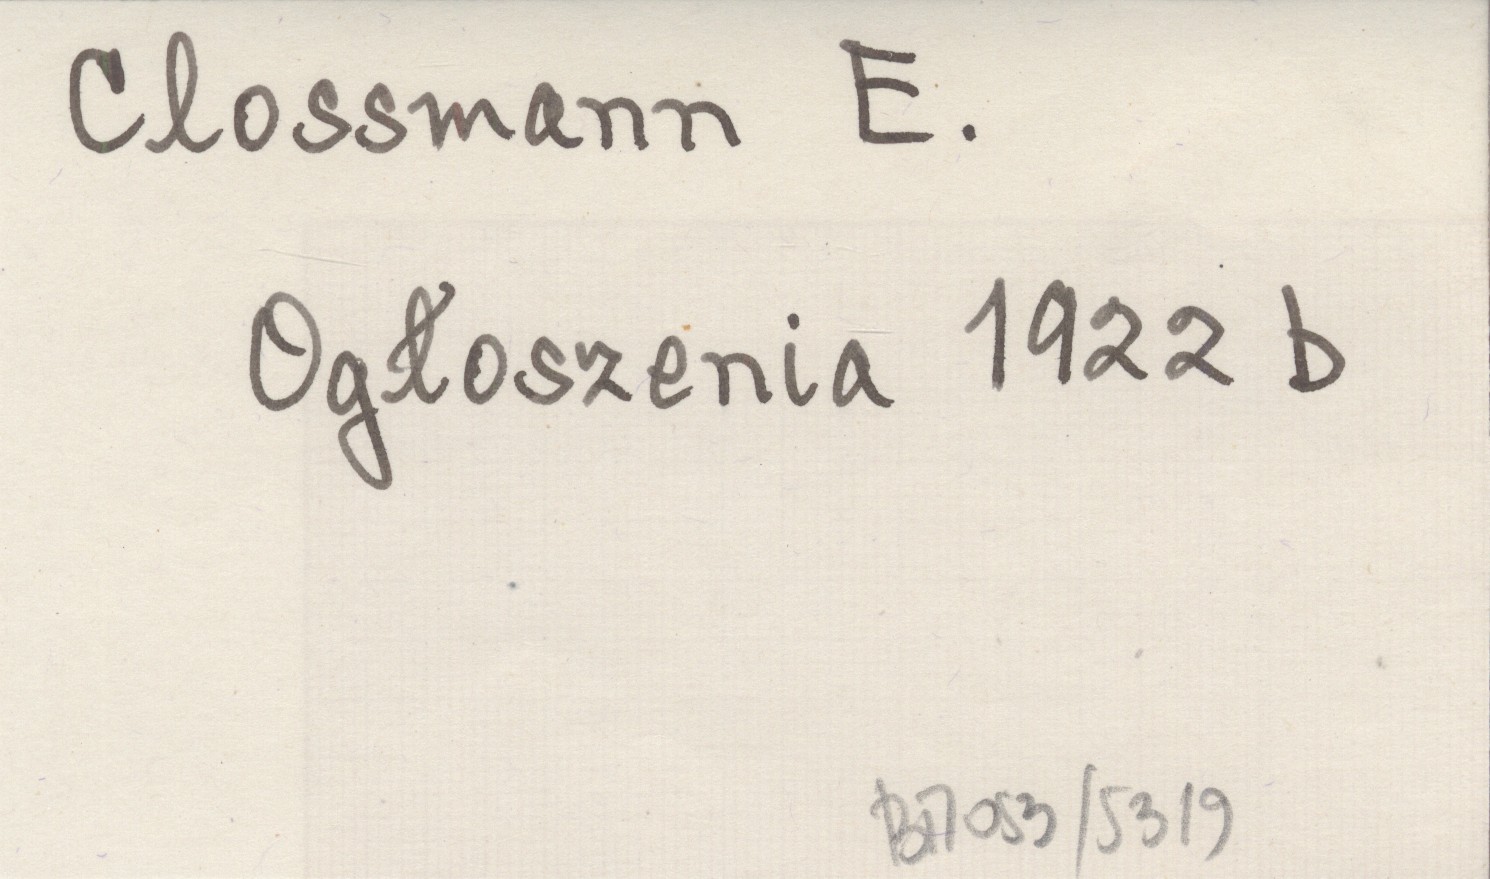 Clossmann E.
Ogłoszenia 1922 b
053/5319